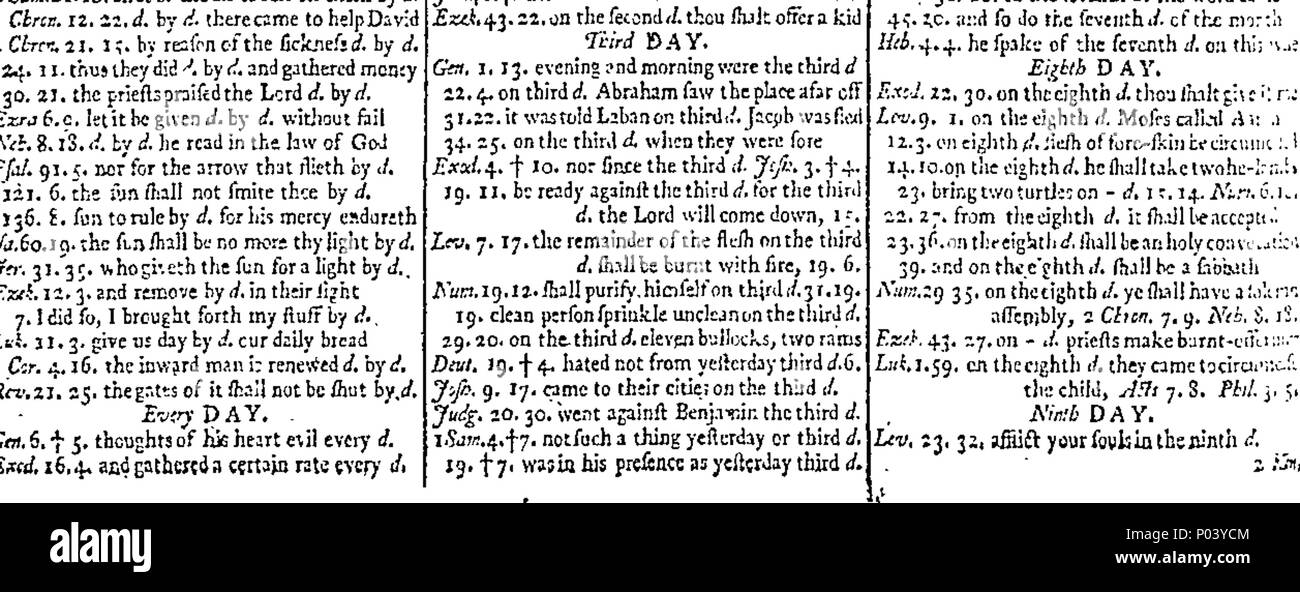 Chron. 12. 22. d. by d. there came to help David
Chron. 21. 15. by reason of the sickness d. by d.
24. 11. thus they did d. by d. and gathered money
30. 21. the priests praised the Lord d. by d.
Ezra 6. 9. let it be given d. by d. without fail
Neh. 8. 18. d. by d. he read in the law of God
Psal. 91. 5. nor for the arrow that flieth by d.
121. 6. the sun shall not smite thee by d.
136. 8. sun to rule by d. for his mercy endureth
Isa. 60. 19. the sun shall be no more thy light by d.
Jer. 31. 35. who giveth the sun for a light by d.
Ezek. 12. 3. and remove by d. in their sight
7. I did so, I brought forth my stuff by d.
Luk. 11. 3. give us day by d. our daily bread
Cor. 4. 16. the inward man is renewed d. by d.
Rev. 21. 25. the gates of it shall not be shut by d.
Every DAY.
Gen. 6. † 5. thoughts of his heart evil every d.
Exod. 16. 4. and gathered a certain rate every d.
Ezek. 43. 22. on the second d. thou shalt offer a kid
Third DAY.
Gen. 1. 13. evening and morning were the third d
22. 4. on third d. Abraham saw the place afar off
31. 22. it was told Laban on third d. Jacob was fled
34. 25. on the third d. when they were sore
Exod. 4. † 10. nor since the third d. Josh. 3. † 4.
19. 11. be ready against the third d. for the third
d. the Lord will come down, 15.
Lev. 7. 17. the remainder of the flesh on the third
d. shall be burnt with fire, 19. 6.
Num. 19. 12. shall purify himself on third d. 31. 19.
19. clean person sprinkle unclean on the third d.
29. 20. on the third d. eleven bullocks, two rams
Deut. 19. † 4. hated not from yesterday third d. 6.
Josh. 9. 17. came to their cities on the third d.
Judg. 20. 30. went against Benjamin the third d.
1 Sam. 4. † 7. not such a thing yesterday or third d.
19. † 7. was in his presence as yesterday third d.
45. 20. and so do the seventh d. of the month
Heb. 4. 4. he spake of the seventh d. on this
Eighth DAY.
Exod. 22. 30. on the eighth d. thou shalt give it me
Lev. 9. 1. on the eighth d. Moses called
12. 3. on eighth d. flesh of fore-skin be
14. 10. on the eighth d. he shall take two he-lambs
23. bring two turtles on - d. 15. 14. Num. 6. 10.
22. 27. from the eighth d. it shall be accepted
23. 36. on the eighth d. shall be an holy convocation
39. and on the eighth d. shall be a sabbath
Num. 29 35. on the eighth d. ye shall have a solemn
assembly, 2 Chron. 7. 9. Neh. 8. 18.
Ezek. 43. 27. on - d. priests make burnt-offerings
Luk. 1. 59. on the eighth d. they came to circumcise
the child, Acts 7. 8. Phil. 3. 5.
Ninth DAY.
Lev. 23. 32. afflict your souls in the ninth d.
alamy
Image ID: P03YCM
www.alamy.com